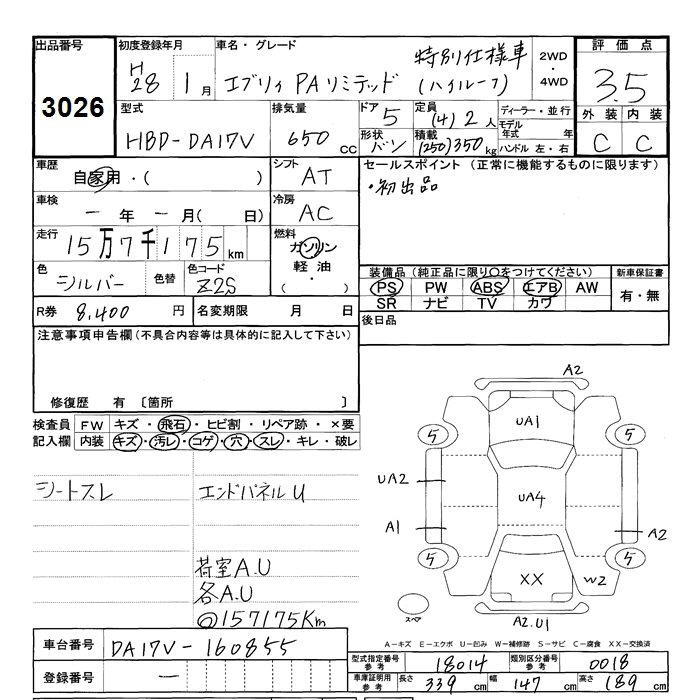 出品番号 初度登録年月 車名・グレード 特別仕様車 2WD ・ 4WD 評価点
3026 H28 1月 エブリィ PAリミテッド (ハイルーフ) 3.5
型式 排気量 ドア 5 定員 (4) 2人 ディーラー・並行 外装 内装
HBD-DA17V 650 CC 形状 バン 積載 (250)350kg モデル年式 年 ハンドル 左・右 C C
車歴 自家用・( ) シフト AT セールスポイント (正常に機能するものに限ります)
・初出品
車検 ー年 ー月( 日) 冷房 AC
走行 15万7千175km 燃料 ガソリン 軽油・( )
色 シルバー 色替 色コード Z2S
装備品 (純正品に限り○をつけてください) 新車保証書
PS PW ABS エアB AW 有・無
SR ナビ TV カワ
R券 8,400円 名変期限 月 日 後日品
注意事項申告欄(不具合内容等は具体的に記入して下さい)
修復歴 有 〔箇所 〕
検査員記入欄 FW キズ・飛石・ヒビ割・リペア跡・×要
内装 キズ・汚レ・コゲ・穴・スレ・キレ・破レ
シートスレ エンドパネルU
荷室A.U
各A.U
@157175Km
A2
UA1
5 5
UA2 UA4
A1 A2
5 5
XX W2
スペア A2.U1
A-キズ E-エクボ U-凹み W-補修跡 S-サビ C-腐食 XX-交換済
車台番号 DA17V-160855
型式指定番号 参考 18014 類別区分番号 参考 0018
登録番号 ー
車庫証明用 参考 長さ 339cm 幅 147cm 高さ 189cm